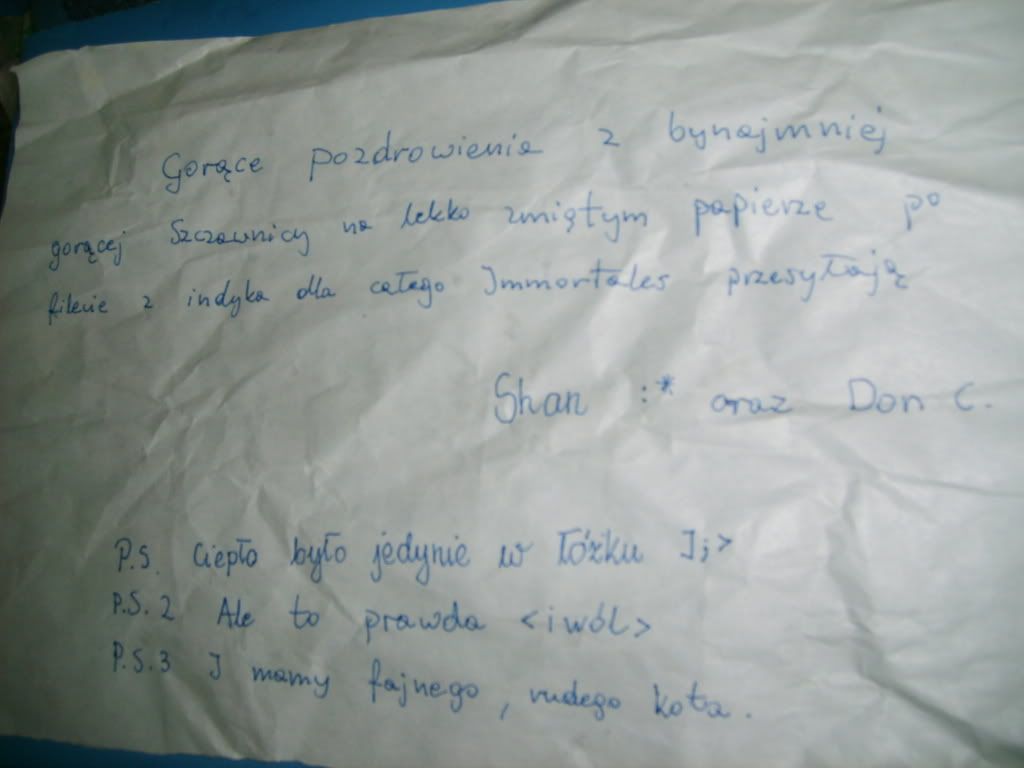 Gorące pozdrowienia z bynajmniej
gorącej Szczawnicy na lekko zmiętym papierze po
filecie z indyka dla całego Immortales przesyłają
Shan :* oraz Don C.
P.S. Ciepło było jedynie w łóżku ];>
P.S.2 Ale to prawda <iwól>
P.S.3 I mamy fajnego, rudego kota.